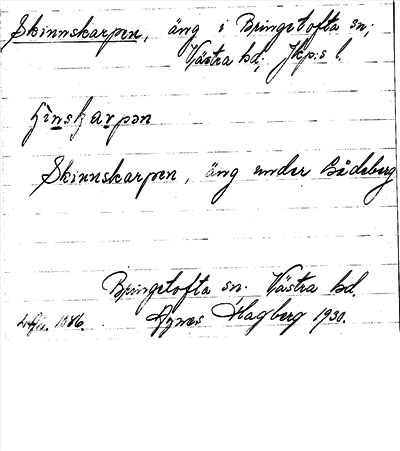 Skinnskarpen, äng i Bringetofta sn;
Västra hd; Jkp:s l.
Skinnskarpen, äng under Bådeberg
Bringetofta sn. Västra hd.
Agnes Hagberg 1930.